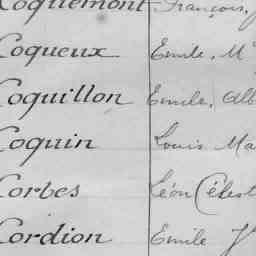 Coquemont François,
Coqueux Emile, M
Coquillon Emile, Alb
Coquin Louis Ma
Corbes Léon Célest
Cordion Emile J